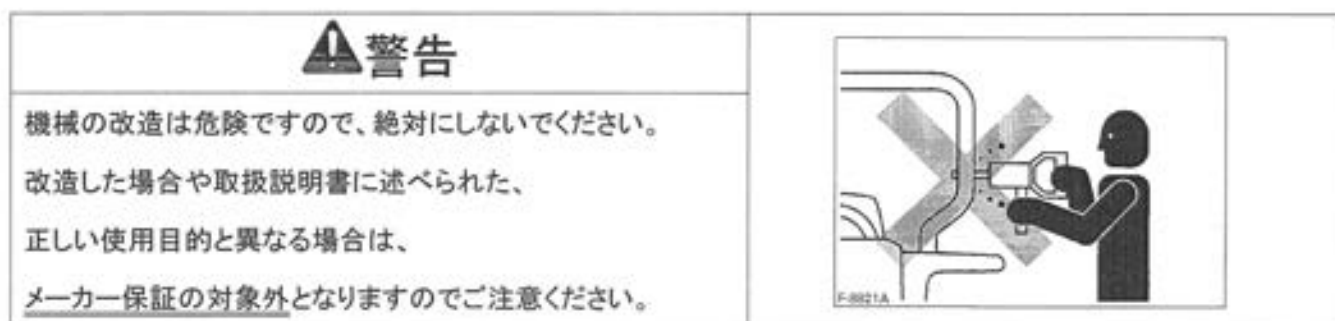 警告
機械の改造は危険ですので、絶対にしないでください。
改造した場合や取扱説明書に述べられた、
正しい使用目的と異なる場合は、
メーカー保証の対象外となりますのでご注意ください。
F-8821A